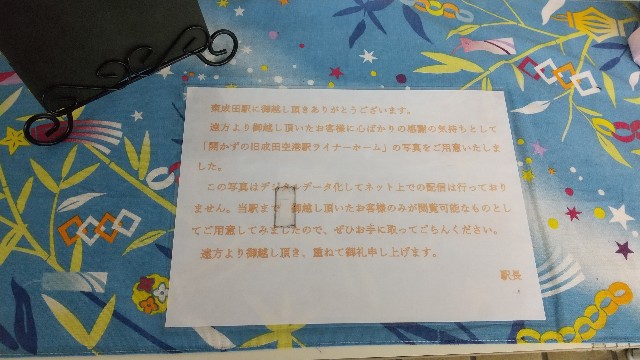 東成田駅に御越し頂きありがとうございます。
遠方より御越し頂いたお客様に心ばかりの感謝の気持ちとして
「開かずの旧成田空港駅ライナーホーム」の写真をご用意いたしま
した。
この写真はデジタルデータ化してネット上での配信は行っており
ません。当駅まで御越し頂いたお客様のみが閲覧可能なものとし
てご用意してみましたので、ぜひお手に取ってごらんください。
遠方より御越し頂き、重ねて御礼申し上げます。
駅長